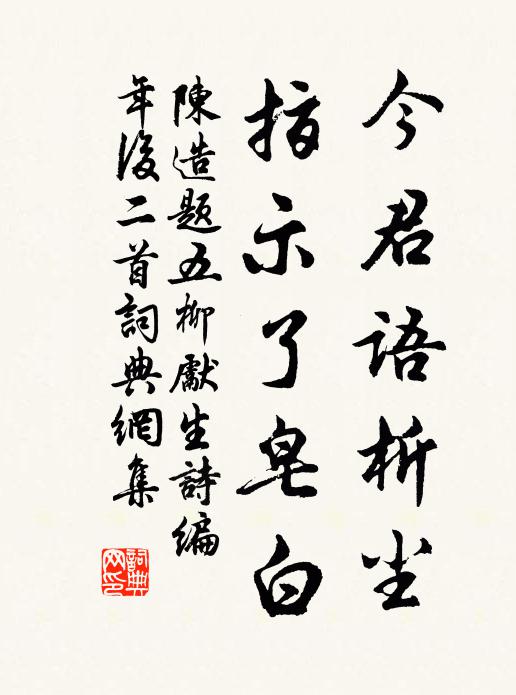 今君語析尘
指示了皂白
陳造題五柳獻生詩編
年後二首詞典網集
詞典
网印